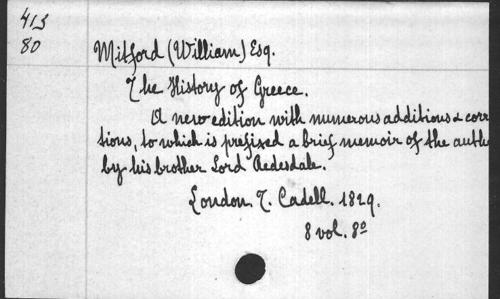 413
80
Mitford (William) Esq.
The History of Greece.
A new edition with numerous additions & corr
tions, to which is prefixed a brief memoir of the auth
by his brother Lord Redesdale.
London. T. Cadell. 1829.
8 vol. 8º